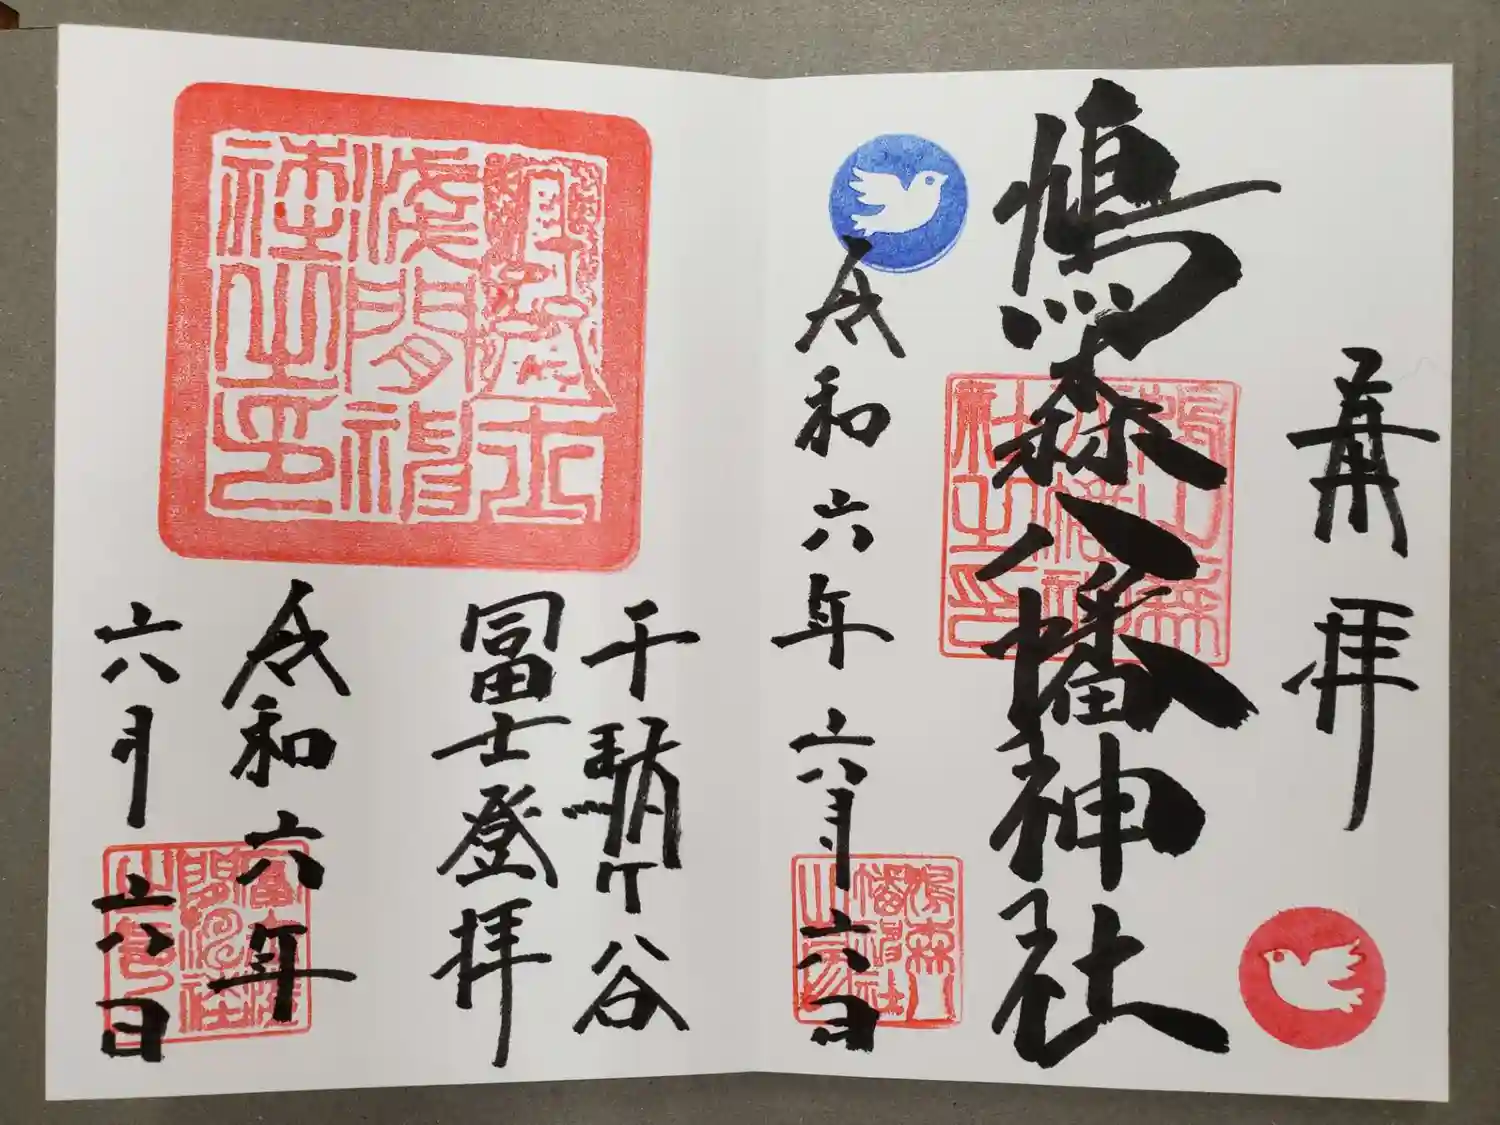 奉拝
鳩森八幡神社
令和六年六月六日
千駄ヶ谷
冨士登拝
令和六年
六月六日